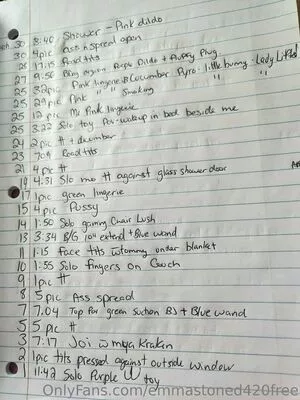 30 8:40 Shower - Pink dildo
30 4pic ass n spread open
28 19:15 Road tits
27 9:50 Bbg orgasm Purple Dildo + Fluffy Plug
25 32pic Pink lingerie & Cucumber Pyro: little bunny: Lady
25 29pic Pink " " Smoking " "
25 12 pic Mi Pink lingerie
25 3:22 Solo toy Pov - wakeup in bed beside me
24 2pic tt +
23 7:09 Road tits
21 4pic tt
19 4:31 Slo mo tt against glass shower door
17 1pic green lingerie
15 4pic Pussy
14 1:50 Solo gaming Chair Lush
13 3:34 B/G toy extend + Blue wand
11 1:15 face tits w/tommy under blanket
10 1:55 Solo fingers on Couch
9 1pic tt
8 5pic Ass spread
7 7:04 Top for green suction BJ + Blue wand
5 5pic tt
3 7:17 Joi w mya Kraken
2 1pic tits pressed against outside window
1 11:42 Solo Purple W toy
OnlyFans.com/emmastoned420free